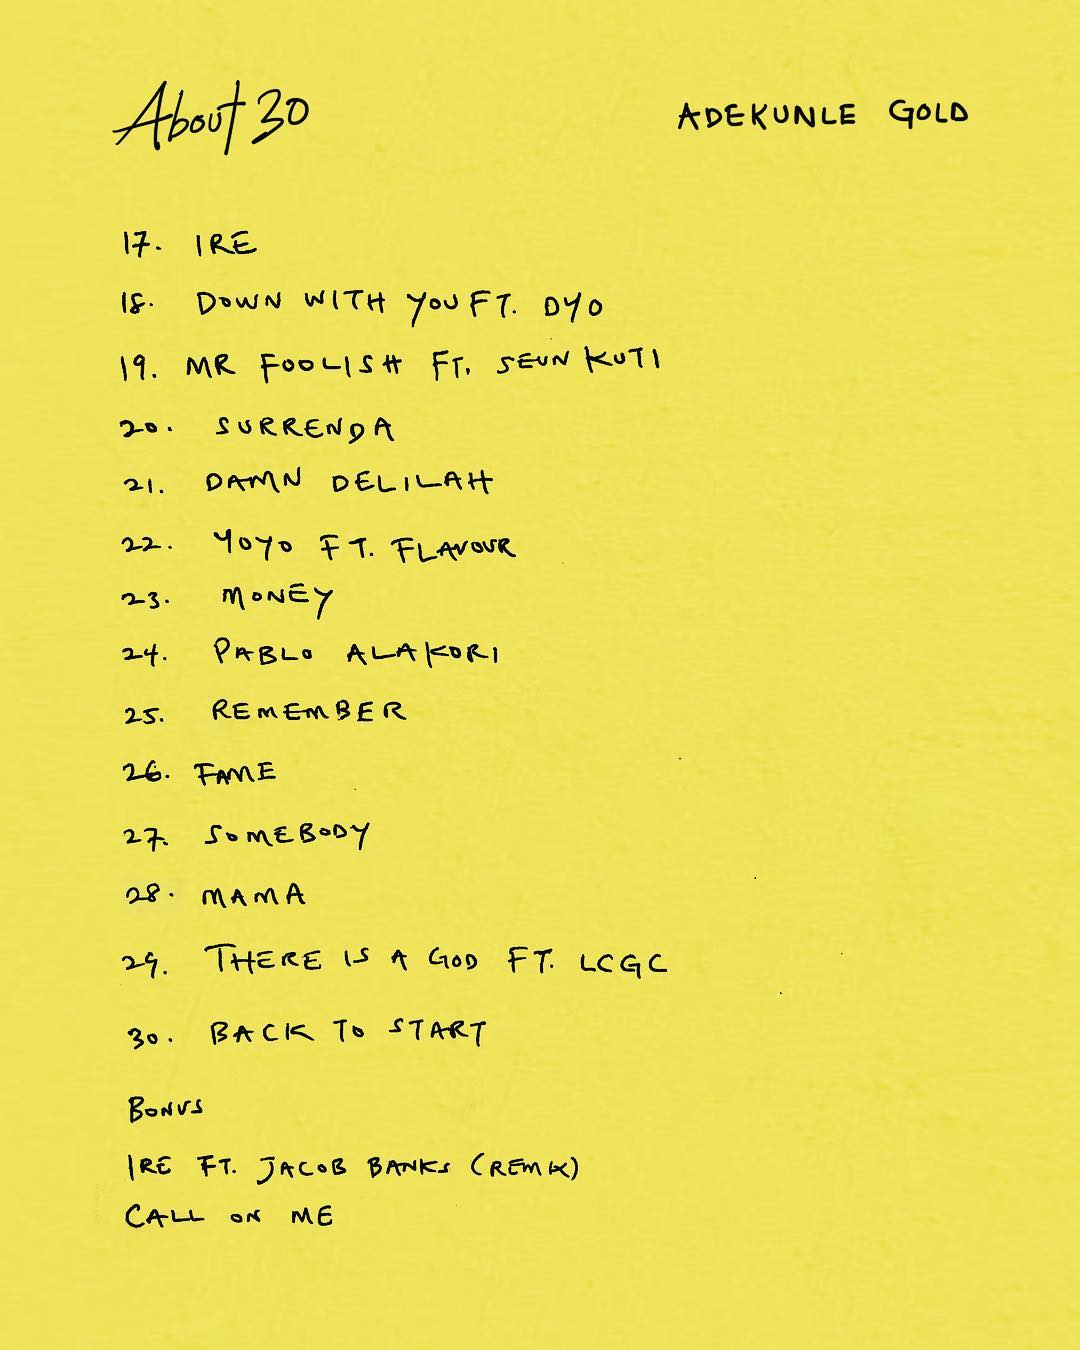 About 30
ADEKUNLE GOLD
17. IRE
18. DOWN WITH YOU FT. DYO
19. MR FOOLISH FT. SEUN KUTI
20. SURRENDA
21. DAMN DELILAH
22. YOYO FT. FLAVOUR
23. MONEY
24. PABLO ALAKORI
25. REMEMBER
26. FAME
27. SOMEBODY
28. MAMA
29. THERE IS A GOD FT. LCGC
30. BACK TO START
BONUS
IRE FT. JACOB BANKS (REMIX)
CALL ON ME